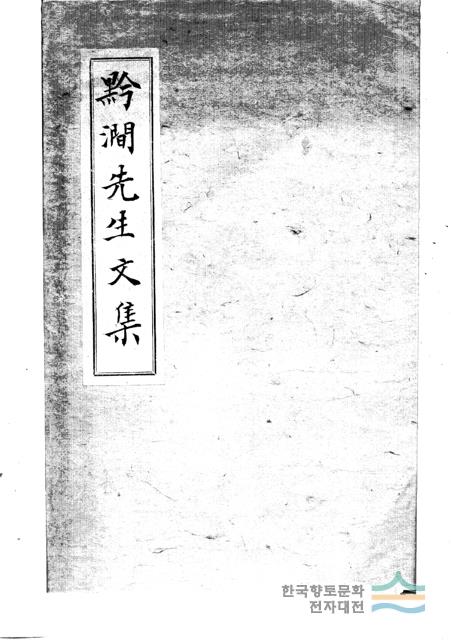 黔澗先生文集
한국향토문화
전자대전